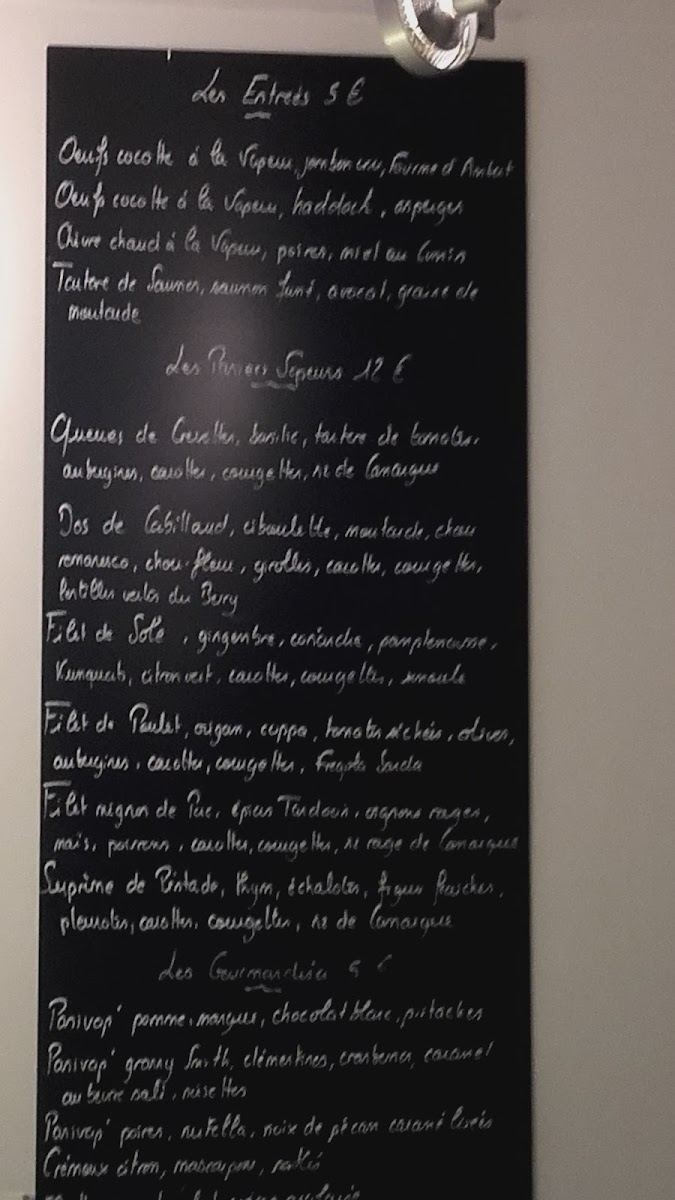 Les Entrées 5 €
Oeufs cocotte à la Vapeur, jambon cru, Fourme d'Ambert
Oeufs cocotte à la Vapeur, haddock, asperges
Chèvre chaud à la Vapeur, poires, miel au Cumin
Tartare de Saumon, saumon fumé, avocat, graine de
moutarde
Les Paniers Vapeurs 12 €
Queues de Crevettes, basilic, tartare de tomates,
aubergines, carottes, courgettes, riz de Camargue
Dos de Cabillaud, ciboulette, moutarde, chou
romanesco, chou-fleur, girolles, carottes, courgettes,
lentilles vertes du Berry
Filet de Sole, gingembre, coriandre, pamplemousse,
Kumquats, citron vert, carottes, courgettes, semoule
Filet de Poulet, origan, coppa, tomates séchées, olives,
aubergines, carottes, courgettes, Fregola Sarda
Filet mignon de Porc, épices Tandoori, oignons rouges,
maïs, poivrons, carottes, courgettes, riz rouge de Camargue
Suprême de Pintade, thym, échalotes, figues fraîches,
pleurotes, carottes, courgettes, riz de Camargue
Les Gourmandises 5 €
Panivap' pomme, mangue, chocolat blanc, pistaches
Panivap' granny Smith, clémentines, cranberries, caramel
au beurre salé, noisettes
Panivap' poires, nutella, noix de pécan caramélisées
Crémeux citron, mascarpone,